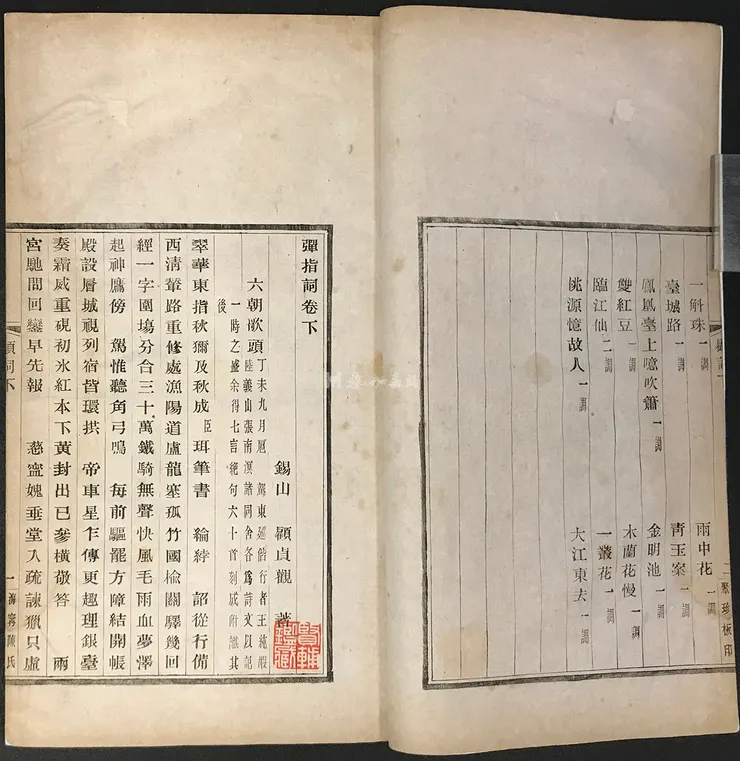 一斛珠 一調 雨中花 一調
臺城路 一調 青玉案 一調
鳳凰臺上憶吹簫 一調 金明池 一調
雙紅豆 一調 木蘭花慢 一調
臨江仙 二調 一叢花 一調
桃源憶故人 一調 大江東去 一調
聚珍板印
彈指詞卷下
錫山 顧貞觀 著
六朝歌頭 丁未九月扈 駕東巡偕行者王 陸義山張南溟諸同舍各為詩文以記
一時之盛余得七言絕句六十首刻成附識其
後
翠華東指秋獮及秋成臣珥筆書 綸綍 詔從行備
西清輦路重修處漁陽道盧龍塞孤竹國楡關驛幾回
經一字圍塲分合三十萬鐵騎無聲快風毛雨血夢澤
起神鷹傍 駕惟聽角弓鳴 每前驅罷方障結開帳
殿設層城視列宿皆環拱 帝車星乍傳更趣理銀臺
奏霜威重硯初氷紅本下黃封出已參橫敬答 兩
宮馳問回鑾早先報 慈寧媿垂堂入疏諫獵只盧
顧詞下
一 海寧陳氏